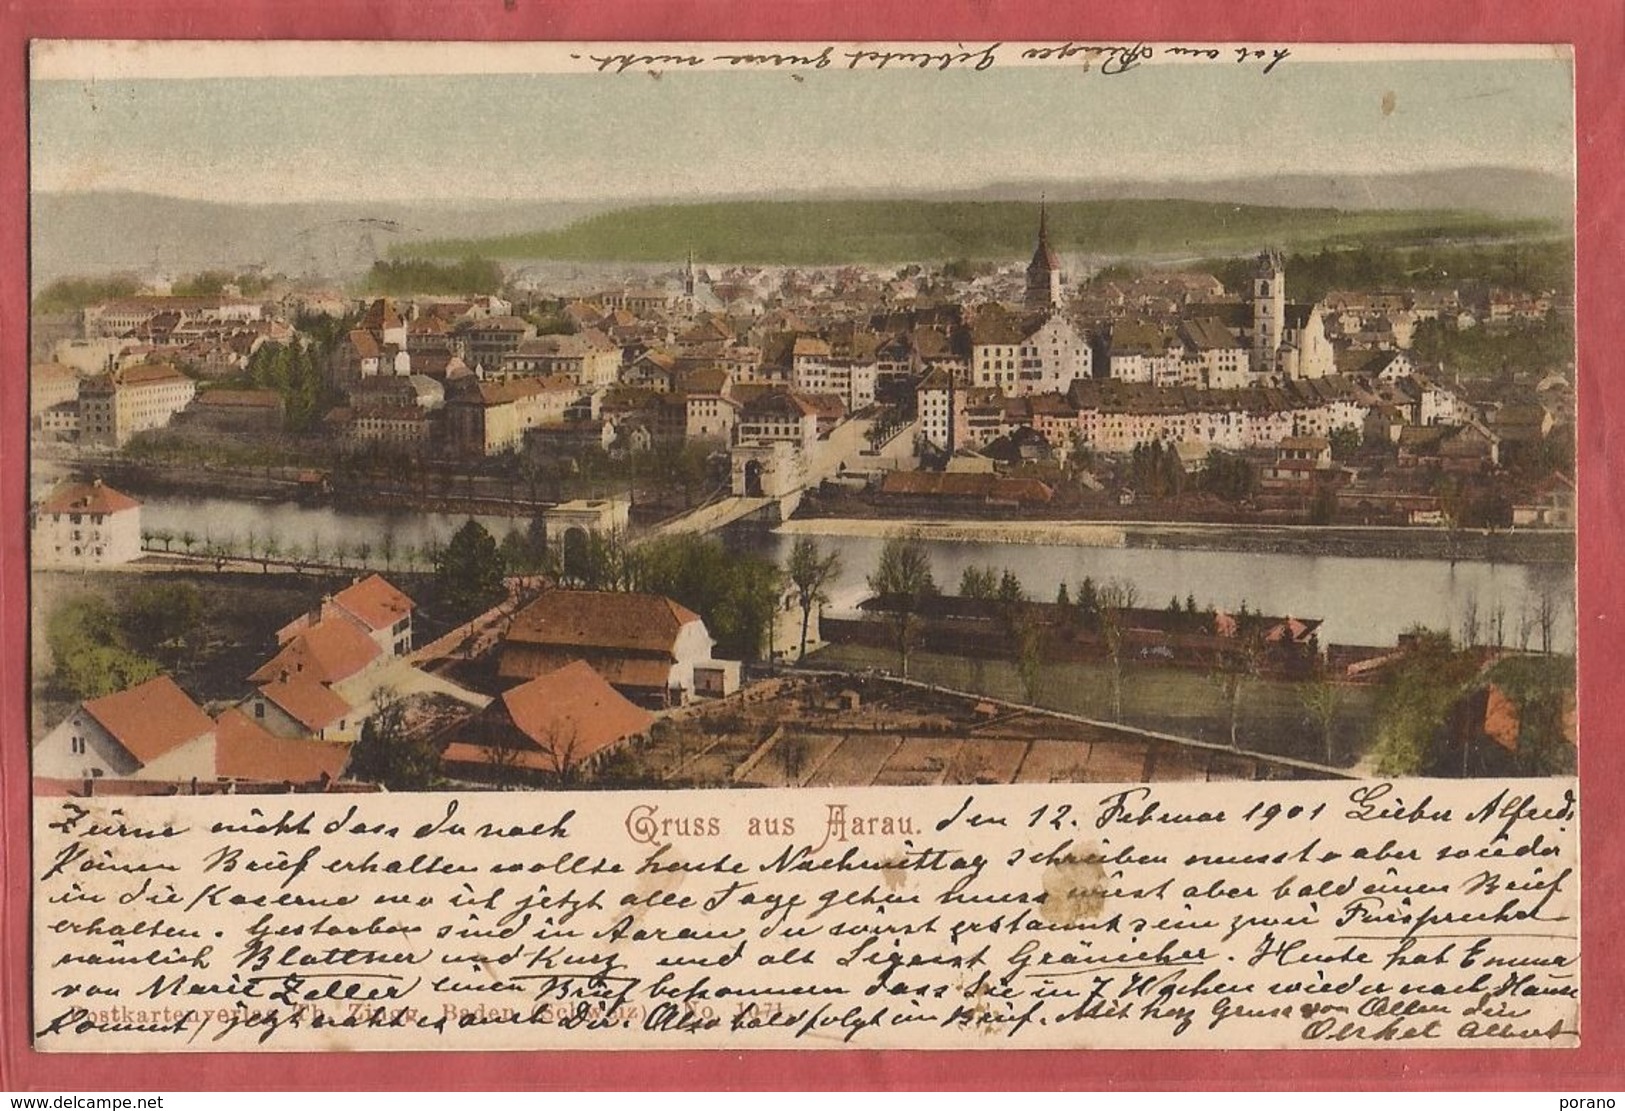 hat am Finger geblutet giene nicht.
Gruss aus Aarau. den 12. Februar 1901 Lieber Alfred,
Zürne nicht dass du noch
keinen Brief erhalten wollte heute Nachmittag schreiben musste aber wieder
in die Kaserne wo ich jetzt alle Tage gehen muss wirst aber bald einen Brief
erhalten. Gestorben sind in Aarau du wirst erstaunt sein zwei Fürsprecher
nämlich Blattner und Kurz und alt Sigrist Gränicher. Heute hat Emma
von Marie Zeller einen Brief bekommen dass Sie in 7 Wochen wieder nach Hause
kommt, jetzt erst es auch Dir. Also bald folgt ein Brief. Mit herz Gruss von Allen dein
Albert
Postkartenverlag Th. Zingg, Baden (Schweiz) No. 1071
delcampe.net
porano